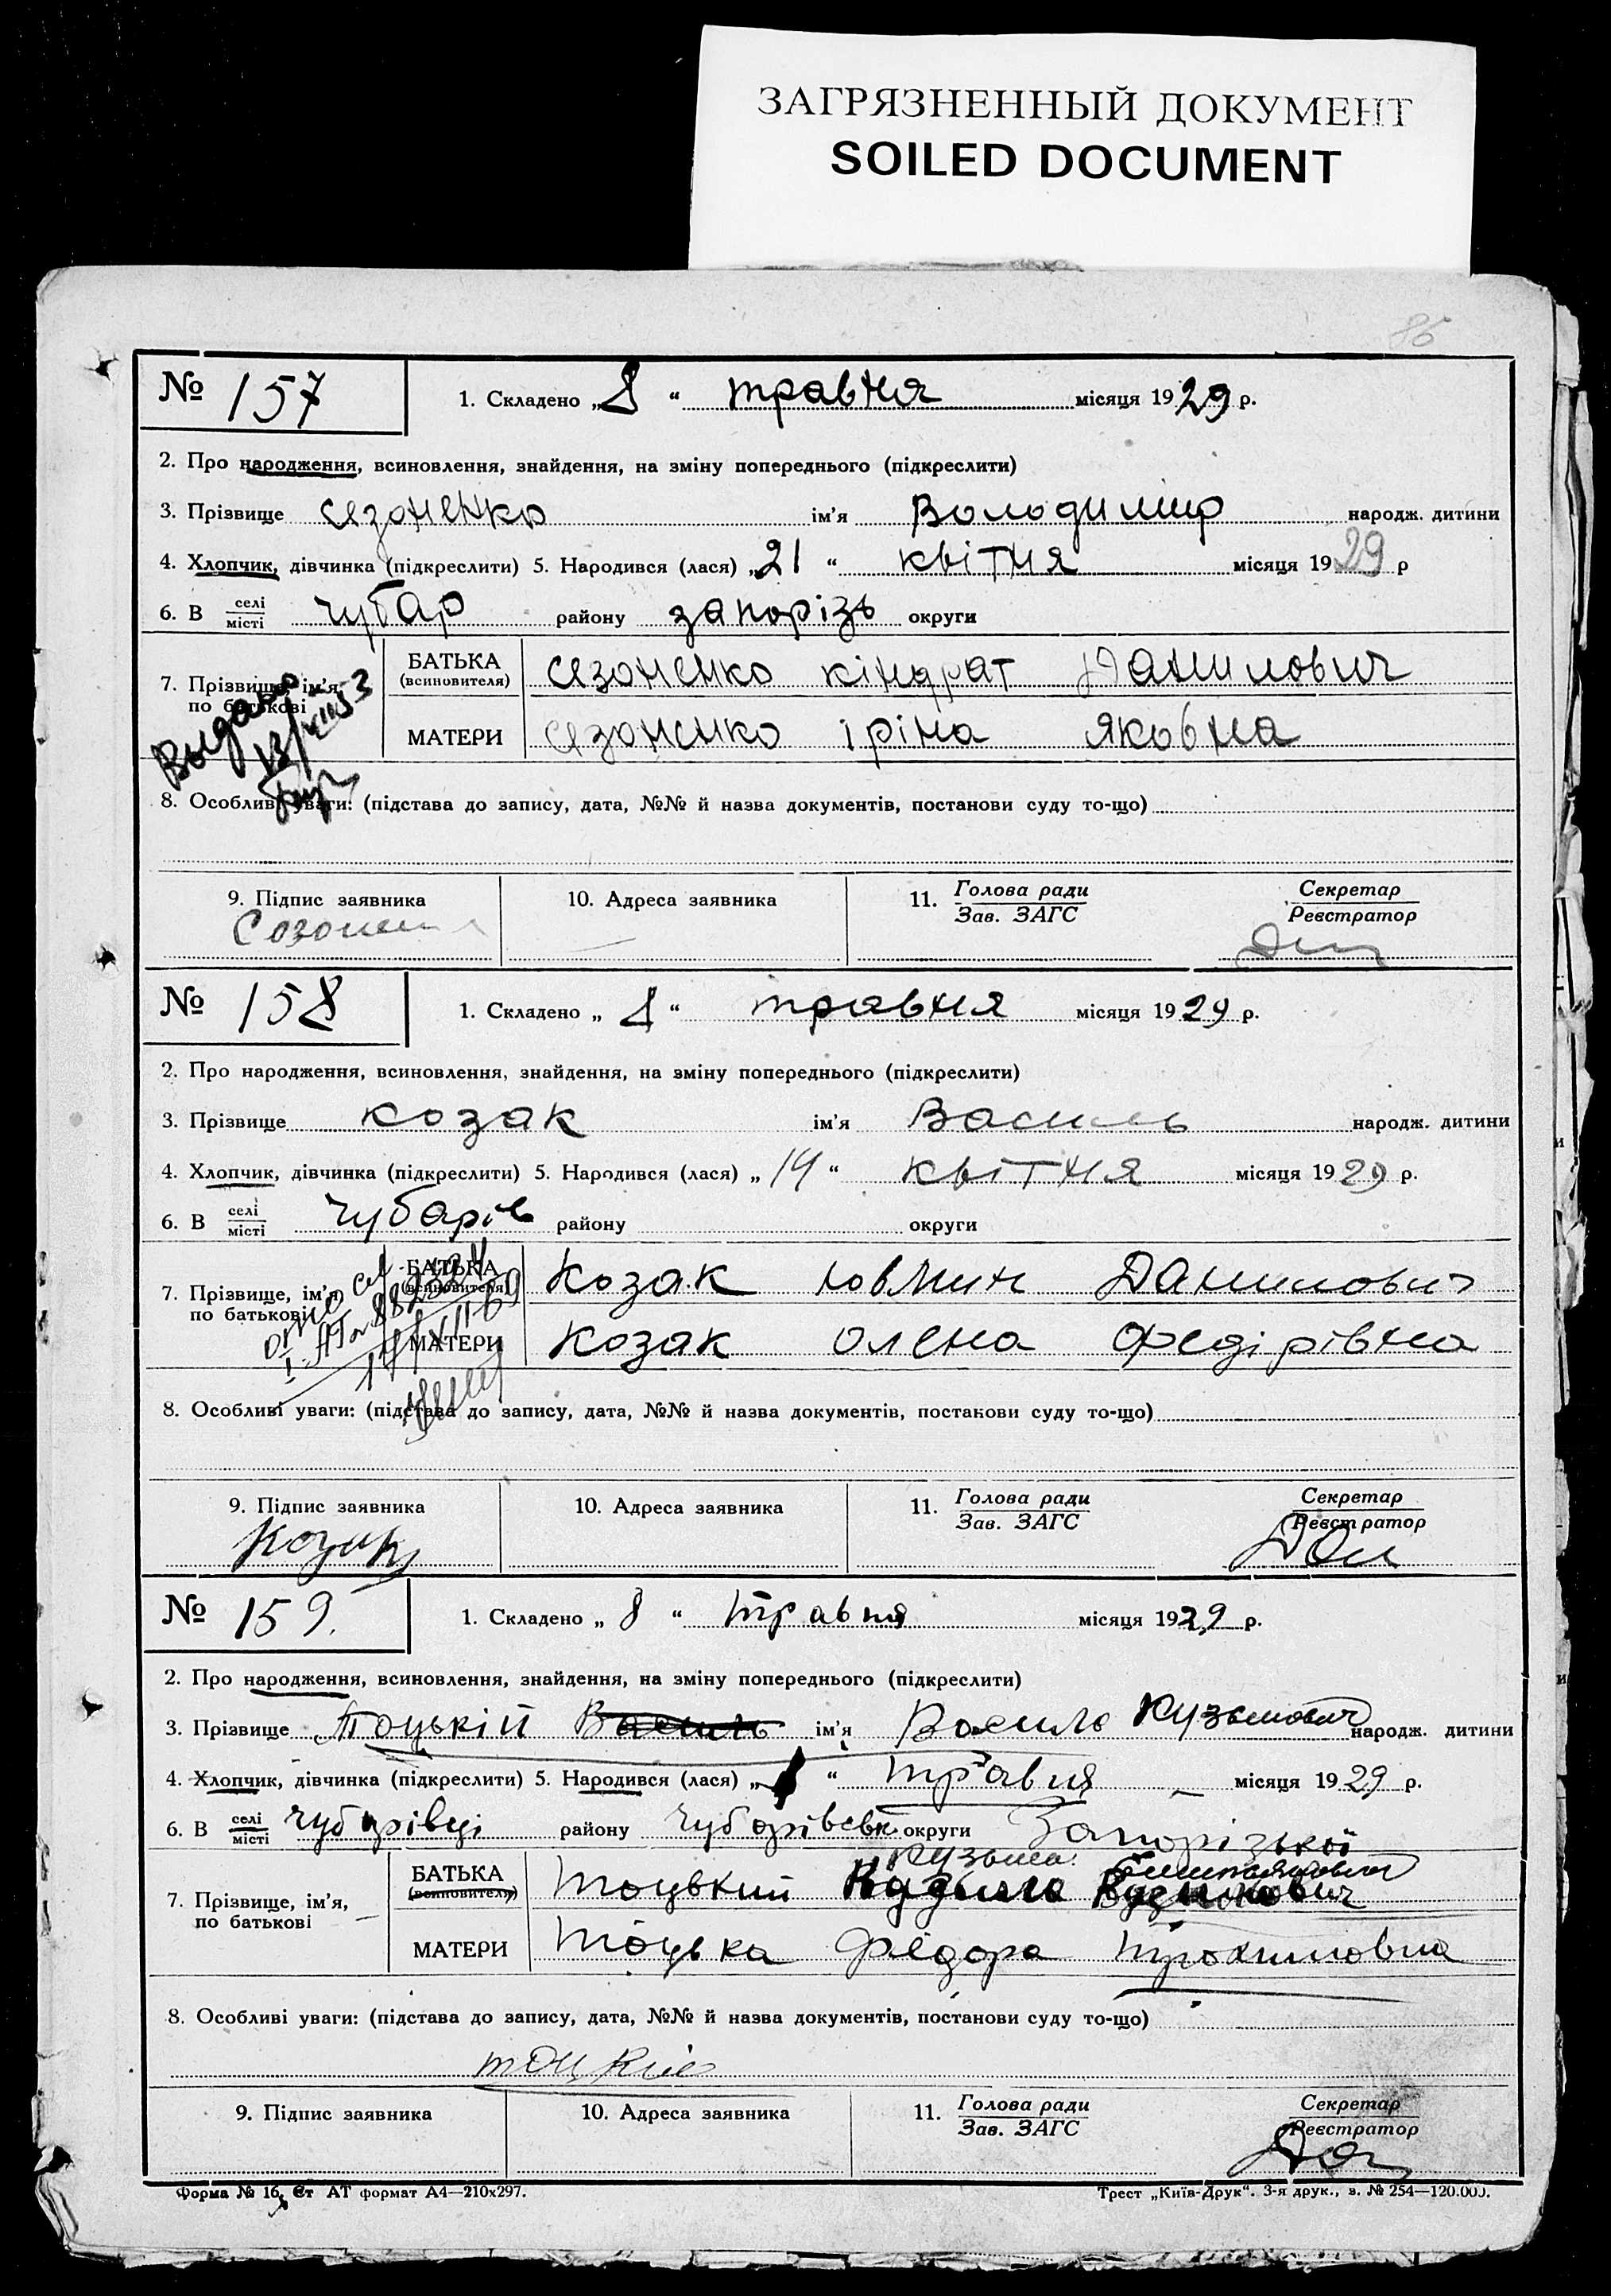 ЗАГРЯЗНЕННЫЙ ДОКУМЕНТ
SOILED DOCUMENT
86
№ 157 1. Складено „8“ травня місяця 1929 р.
2. Про народження, всиновлення, знайдення, на зміну попереднього (підкреслити)
3. Прізвище сезоненко ім'я Володимир народж. дитини
4. Хлопчик, дівчинка (підкреслити) 5. Народився (лася) „21“ квітня місяця 1929 р
6. В селі/місті чубар району запорізь округи
7. Прізвище, ім'я, по батькові
БАТЬКА (всиновителя) сезоненко кіндрат Данилович
МАТЕРИ сезоненко іріна яковна
Выдано
8. Особливі уваги: (підстава до запису, дата, №№ й назва документів, постанови суду то-що)
9. Підпис заявника 10. Адреса заявника 11. Голова ради/Зав. ЗАГС Секретар/Реєстратор
№ 158 1. Складено „8“ травня місяця 1929 р.
2. Про народження, всиновлення, знайдення, на зміну попереднього (підкреслити)
3. Прізвище козак ім'я Василь народж. дитини
4. Хлопчик, дівчинка (підкреслити) 5. Народився (лася) „14“ квітня місяця 1929 р.
6. В селі/місті чубарів району округи
7. Прізвище, ім'я, по батькові
БАТЬКА (всиновителя) Козак ювмин Данилович
МАТЕРИ Козак олена федірівна
8. Особливі уваги: (підстава до запису, дата, №№ й назва документів, постанови суду то-що)
9. Підпис заявника 10. Адреса заявника 11. Голова ради/Зав. ЗАГС Секретар/Реєстратор
Козак
№ 159. 1. Складено „8“ травня місяця 1929 р.
2. Про народження, всиновлення, знайдення, на зміну попереднього (підкреслити)
3. Прізвище Тоцькій Василь ім'я Василь Кузьмович народж. дитини
4. Хлопчик, дівчинка (підкреслити) 5. Народився (лася) „1“ травня місяця 1929 р.
6. В селі/місті Чубарівці району Чубарівськ округи Запорізької
7. Прізвище, ім'я, по батькові
Кузьма
БАТЬКА (всиновителя) Тоцький
МАТЕРИ Тоцька Федора Трохимовна
8. Особливі уваги: (підстава до запису, дата, №№ й назва документів, постанови суду то-що)
9. Підпис заявника 10. Адреса заявника 11. Голова ради/Зав. ЗАГС Секретар/Реєстратор
Форма № 16, Ст АТ формат А4—210х297. Трест „Київ-Друк“. 3-я друк., з. № 254—120.000.